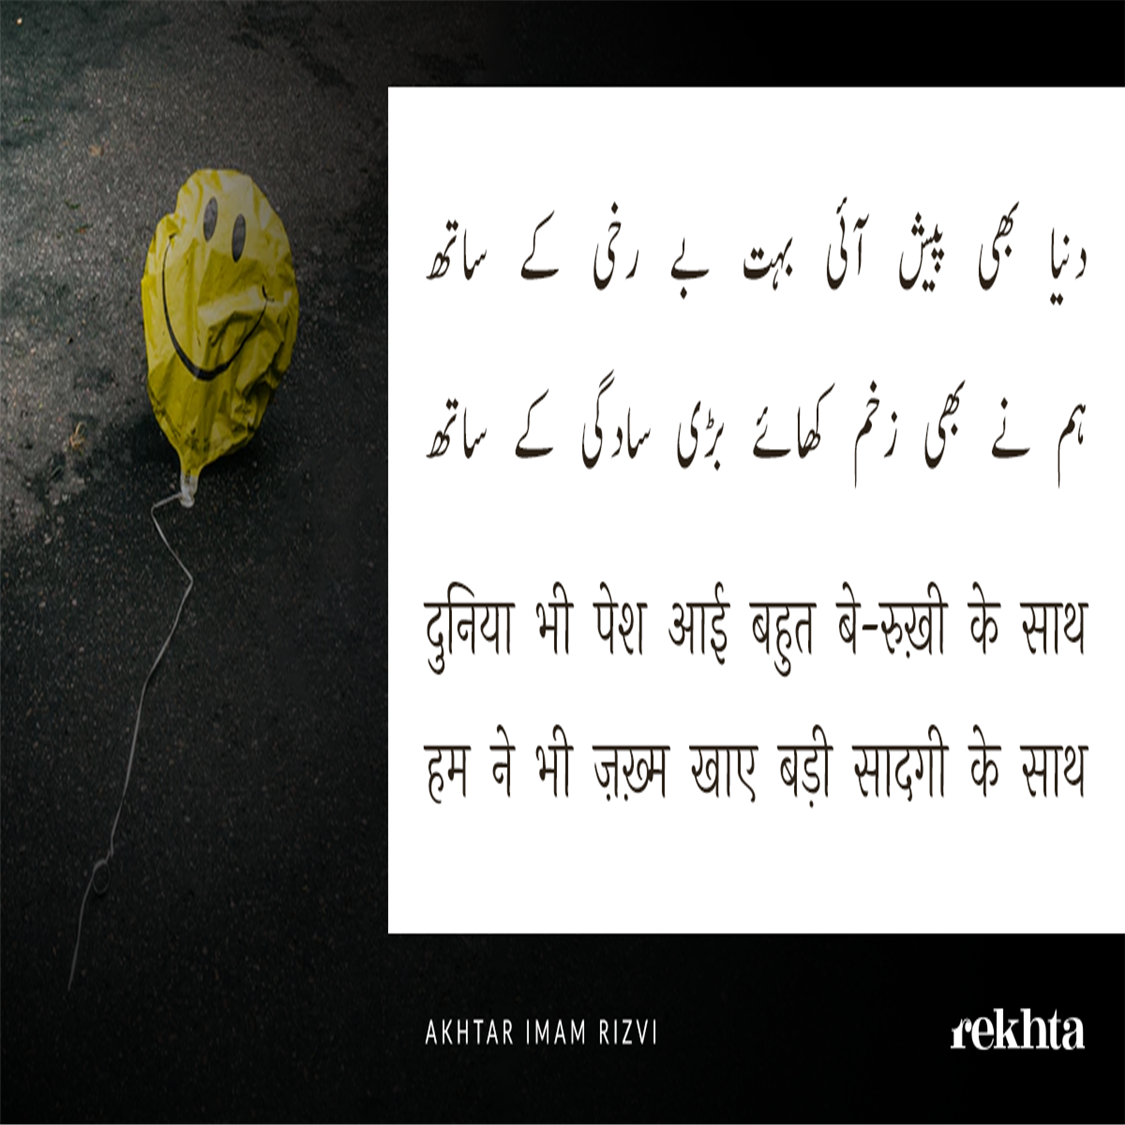 دنیا بھی پیش آئی بہت بے رخی کے ساتھ
ہم نے بھی زخم کھائے بڑی سادگی کے ساتھ
दुनिया भी पेश आई बहुत बे-रुख़ी के साथ
हम ने भी ज़ख़्म खाए बड़ी सादगी के साथ
AKHTAR IMAM RIZVI
rekhta